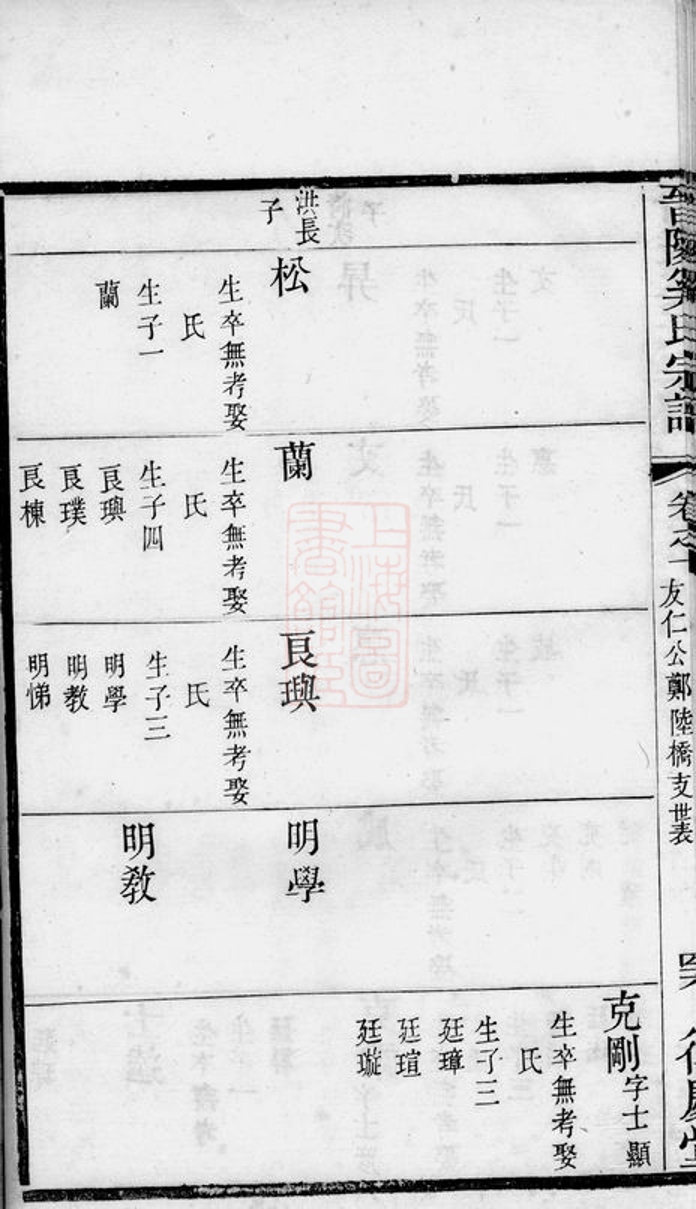 友仁公鄭陸橋支世表
洪長
子
松
生卒無考娶
氏
生子一
蘭
蘭
生卒無考娶
氏
生子四
良璵
良璞
良棟
良璵
生卒無考娶
氏
生子三
明學
明教
明悌
明學
明教
克剛字士顯
生卒無考娶
氏
生子三
廷璋
廷瑄
廷璇
上海圖
書館藏